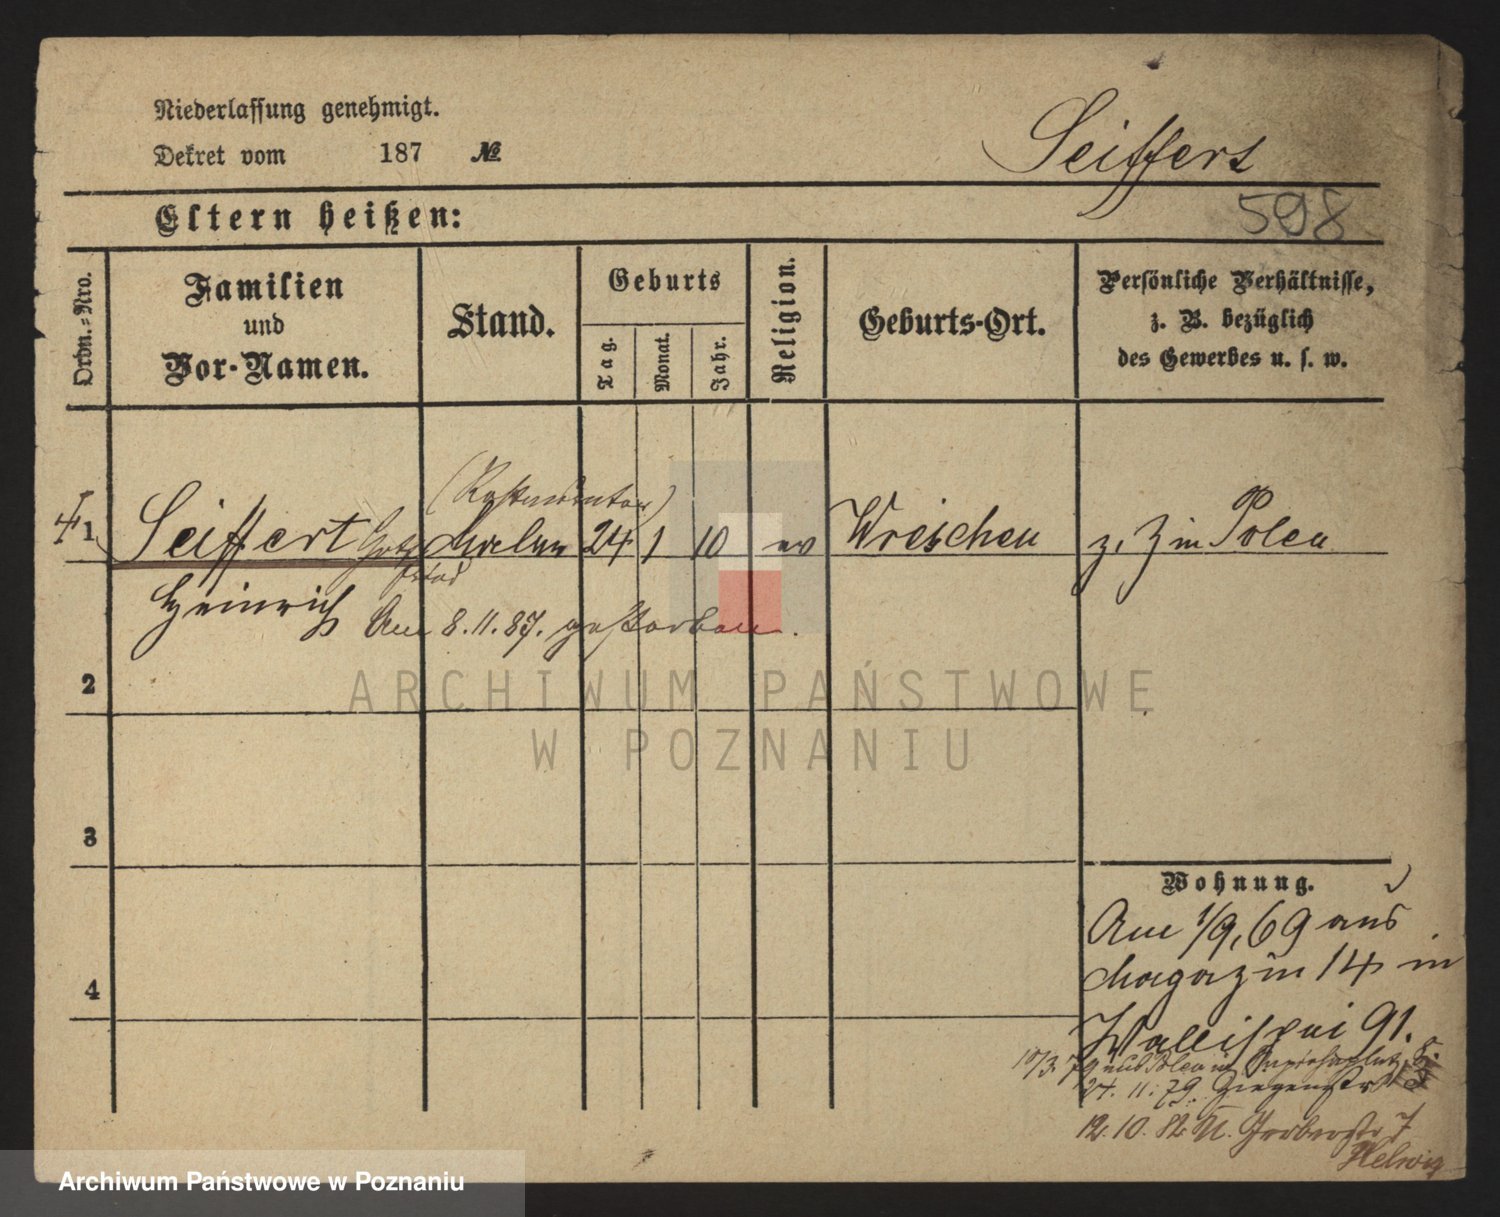 Niederlassung genehmigt.
Dekret vom 187 №
Seiffert
Eltern heißen:
598
Ordn.-Nro.
Familien
und
Vor-Namen.
Stand.
Geburts
Tag.
Monat.
Jahr.
Religion.
Geburts-Ort.
Persönliche Verhältnisse,
z. B. bezüglich
des Gewerbes u. s. w.
1 Seiffert Maler 24 1 10 ev Wreschen z. Z in Polen
Heinrich Am 8.11.87. gestorben.
2
3
4
Wohnung.
Am 1/9, 69 aus
Magazin 14 in
Wallischei 91.
24. 11. 79. Ziegenstr
12. 10. 82. U. Gerberstr 7
Helwig
ARCHIWUM PAŃSTWOWE
W POZNANIU
Archiwum Państwowe w Poznaniu